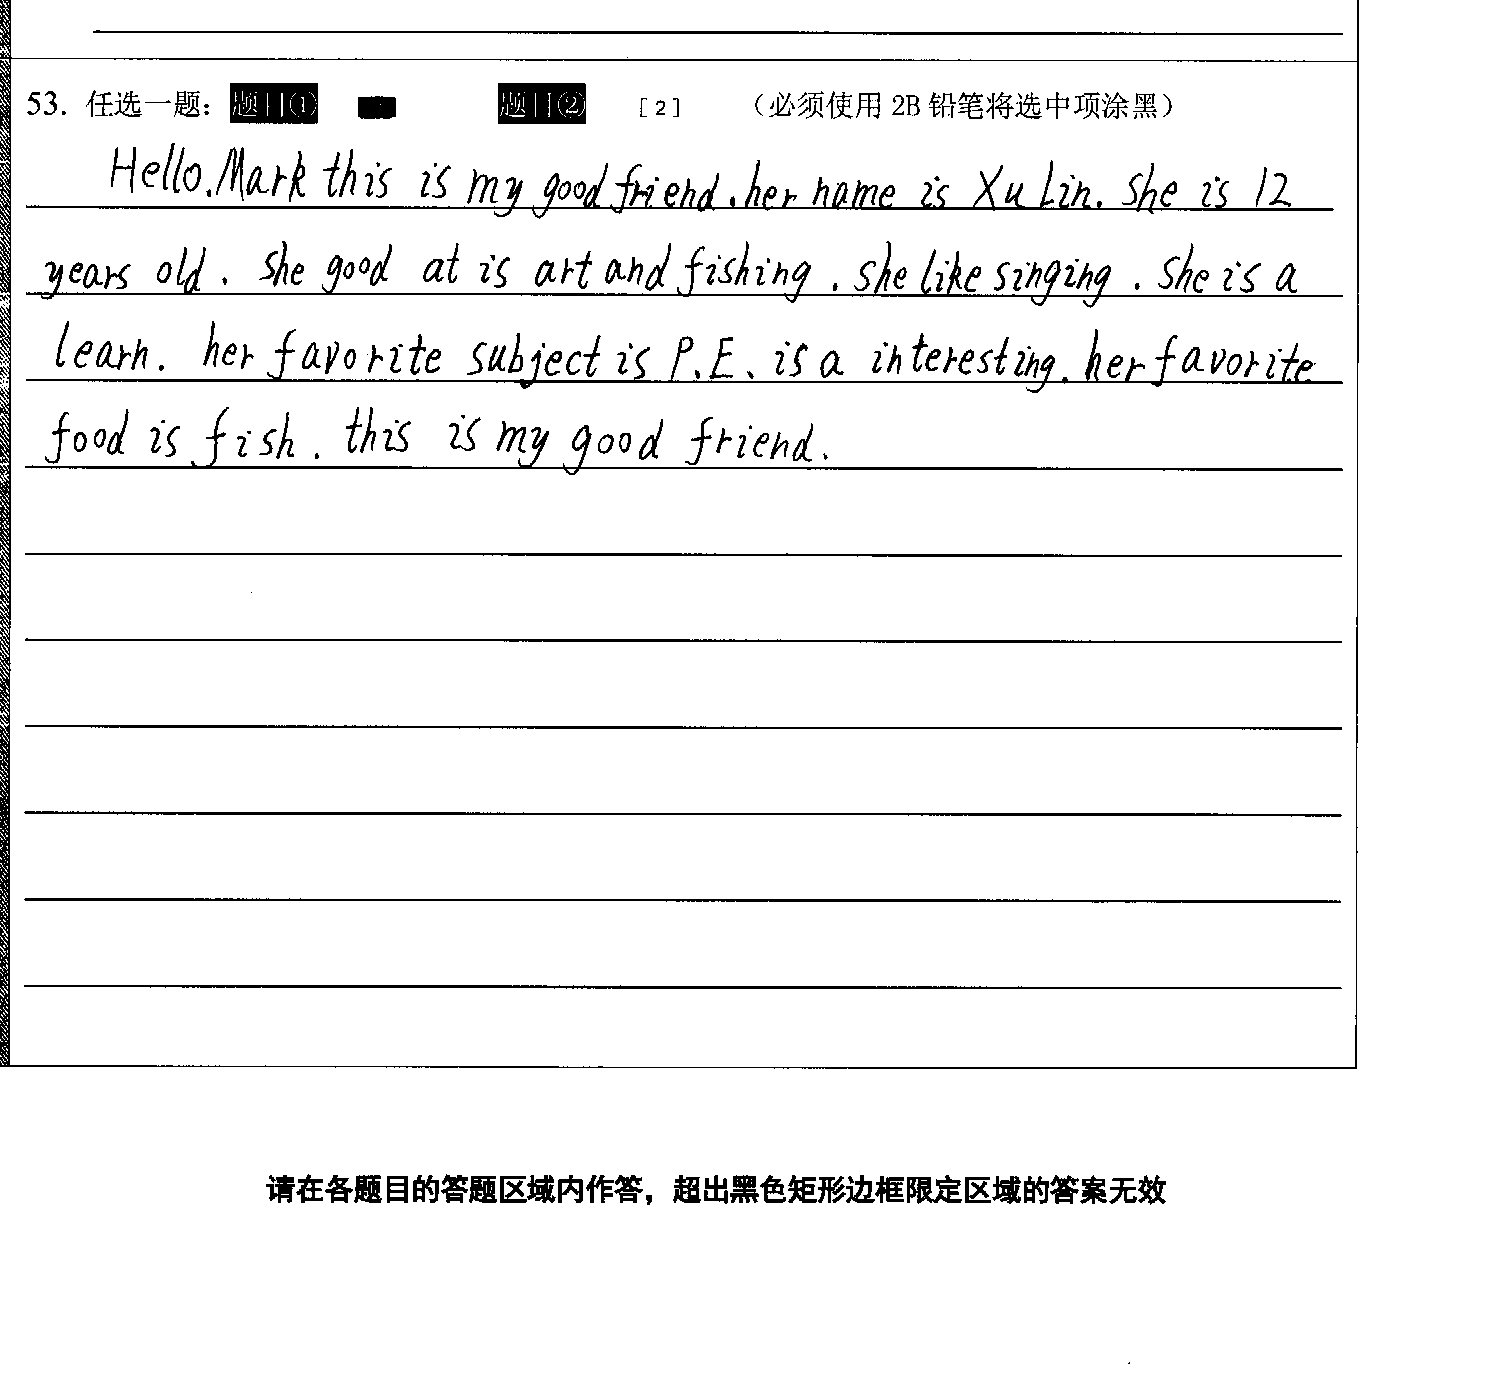 53. 任选一题: 题目① 题目② [2] (必须使用 2B 铅笔将选中项涂黑)
Hello.Mark this is my good friend.her name is Xu Lin. She is 12
years old. She good at is art and fishing. she like singing. She is a
learn. her favorite subject is P.E. is a interesting. her favorite
food is fish. this is my good friend.
请在各题目的答题区域内作答，超出黑色矩形边框限定区域的答案无效